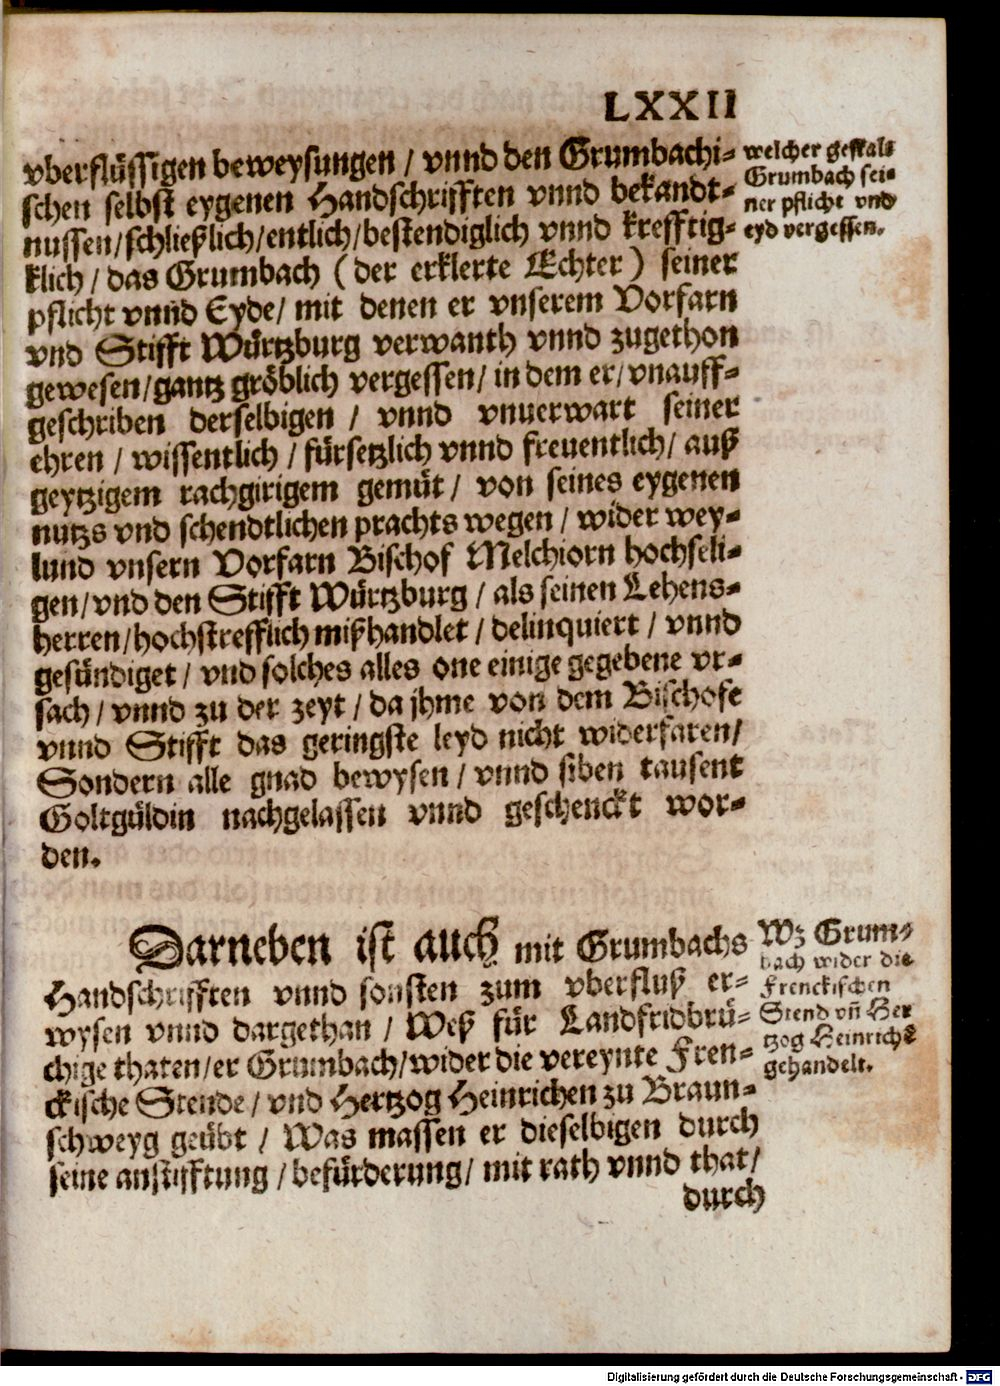 LXXII
vberflüssigen beweysungen / vnnd den Grumbachi-
schen selbst eygenen Handschrifften vnnd bekandt-
nussen/schließlich/entlich/bestendiglich vnnd krefftig-
klich / das Grumbach ( der erklerte Echter ) seiner
pflicht vnnd Eyde/ mit denen er vnserem Vorfarn
vnd Stifft Würtzburg verwanth vnnd zugethon
gewesen/gantz gröblich vergessen/ in dem er/ vnauff-
geschriben derselbigen / vnnd vnuerwart seiner
ehren / wissentlich / fürsetzlich vnnd freuentlich/ auß
geytzigem rachgirigem gemüt / von seines eygenen
nutzs vnd schendtlichen prachts wegen / wider wey-
lund vnsern Vorfarn Bischof Melchiorn hochseli-
gen/vnd den Stifft Würtzburg / als seinen Lehens-
herren/hochstrefflich mißhandlet / delinquiert / vnnd
gesündiget / vnd solches alles one einige gegebene vr-
sach / vnnd zu der zeyt / da jhme von dem Bischofe
vnnd Stifft das geringste leyd nicht widerfaren/
Sondern alle gnad bewysen / vnnd siben tausent
Goltgüldin nachgelassen vnnd geschenckt wor-
den.
welcher gestalt
Grumbach sei-
ner pflicht vnd
eyd vergessen.
Darneben ist auch mit Grumbachs
Handschrifften vnnd sonsten zum vberfluß er-
wysen vnnd dargethan / Weß für Landfridbrü-
chige thaten/er Grumbach/wider die vereynte Fren-
ckische Stende / vnd Hertzog Heinrichen zu Braun-
schweyg geübt / Was massen er dieselbigen durch
seine anstifftung / befürderung/ mit rath vnnd that/
durch
Wz Grum-
bach wider die
Frenckischen
Stend vñ Her
tzog Heinrichē
gehandelt.
Digitalisierung gefördert durch die Deutsche Forschungsgemeinschaft - DFG